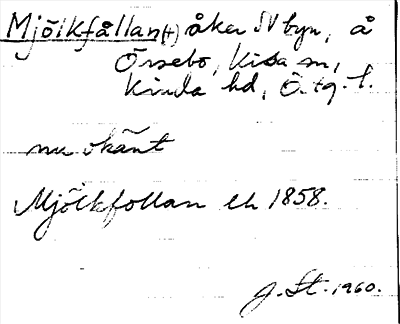 Mjölkfållan (+) åker N byn, å
Örsebo, Kisa sn,
Kinda hd, Ö.tg. l.
nu okänt
Mjölkfollan eh 1858.
J. St. 1960.